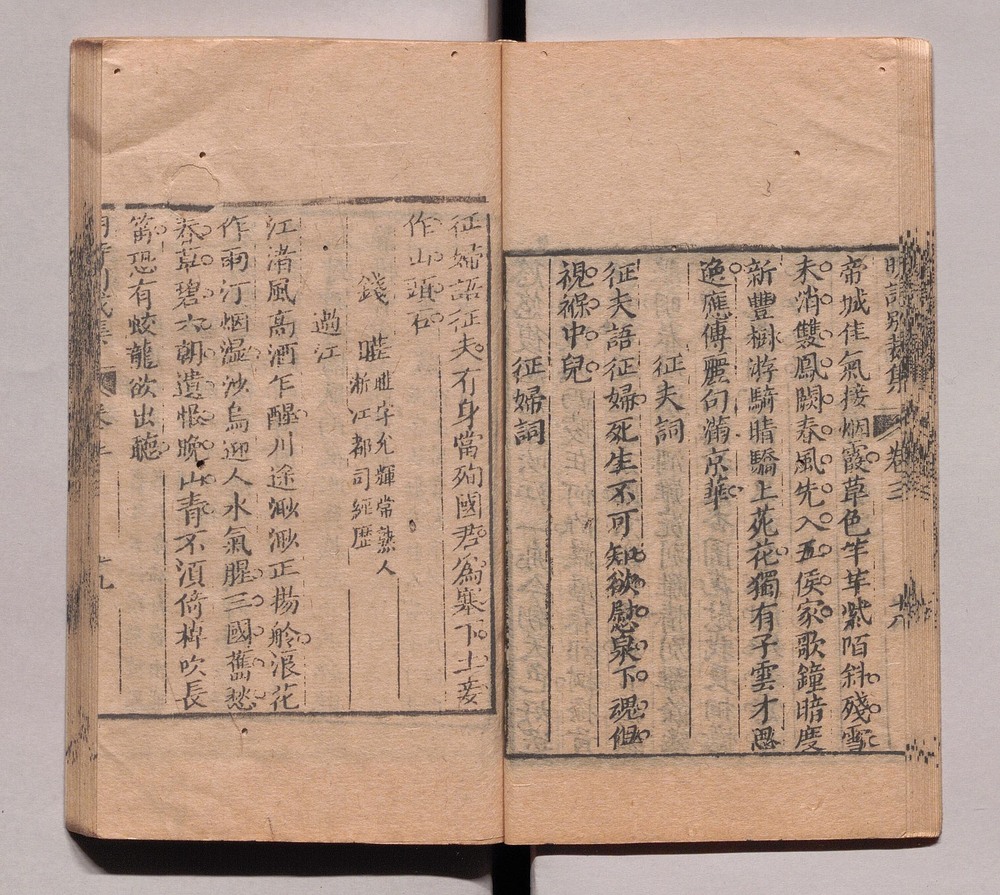 明詩別裁集 卷三 十八
帝城佳氣接烟霞草色芊芊紫陌斜殘雪
未消雙鳳闕春風先入五侯家歌鐘暗度
新豐樹游騎晴驕上苑花獨有子雲才思
逸應傳麗句滿京華
征夫詞
征夫語征婦死生不可知欲慰泉下魂但
視褓中兒
征婦詞
征婦語征夫有身當殉國君為塞下土妾
作山頭石
錢曄 曄字允輝常熟人
浙江都司經歷
過江
江渚風高酒乍醒川途渺渺正揚舲浪花
作雨汀烟濕沙鳥迎人水氣腥三國舊愁
春草碧六朝遺恨晚山青不須倚棹吹長
笛恐有蛟龍欲出聽
卷三
十九